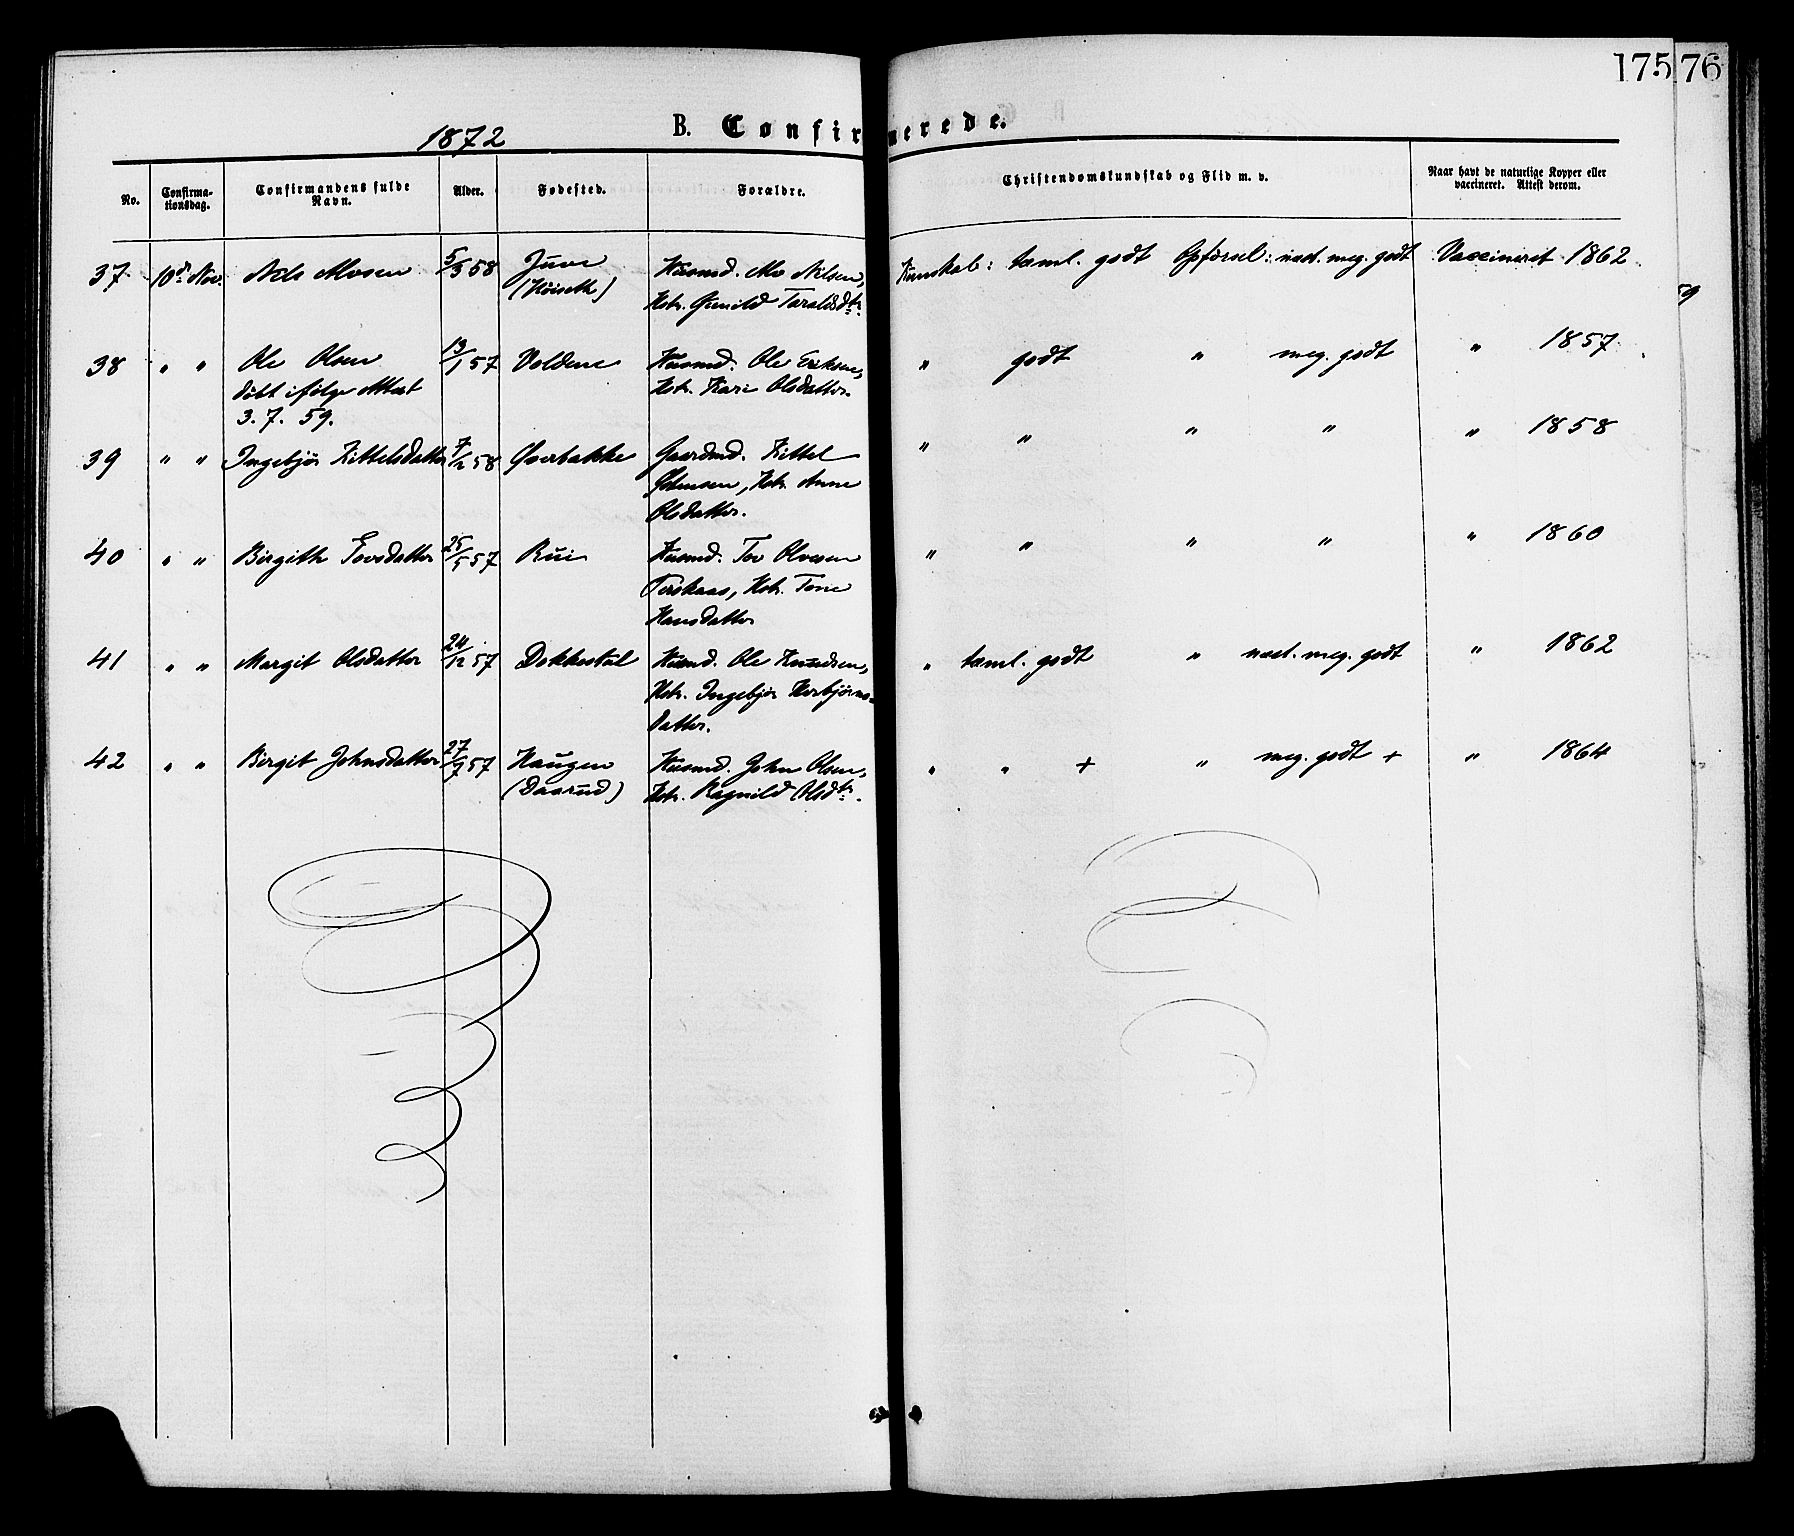 175
76
1872
B. Confirmerede.
No.
Confirma-
tionsdag.
Confirmandens fulde
Navn.
Alder.
Fødested.
Forældre.
Christendomskundskab og Flid m. v.
Naar havt de naturlige Kopper eller
vaccineret. Attest derom.
37 10de Nov. Nils Alvsen 5/3 58 Juve Husmd. Alv Nilsen, Kunskab: taml. godt Opførsel: næst. meg. godt Vaccineret 1862
(Höiseth) Kstr. Gunild Taraldsdtr.
59
38 " " Ole Olsen 13/1 57 Voldene Husmd. Ole Eriksen, " godt " meg. godt " 1857
døbt ifølge Attest Kstr. Kari Olsdatter.
3. 7. 59.
39 " " Ingebjør Kittelsdatter 7/2 58 Øverbakke Gaardmd. Kittel " " " " " 1858
, Kstr. Anne
Olsdatter.
40 " " Birgith Tovsdatter 25/5 57 Rui Husmd. Tov Olvesen " " " " " 1860
Terskaas, Kstr. Tone
Hansdatter
41 " " Margit Olsdatter 24/12 57 Dokkestul Husmd. Ole Knudsen, " taml. godt " næst. meg. godt " 1862
Kstr. Ingebjør Herbjørns-
datter.
42 " " Birgit Johnsdatter 27/7 57 Haugen Husmd. John Olsen, " " + " meg. godt + " 1864
(Daarud) Kstr. Ragnild Olsdtr.